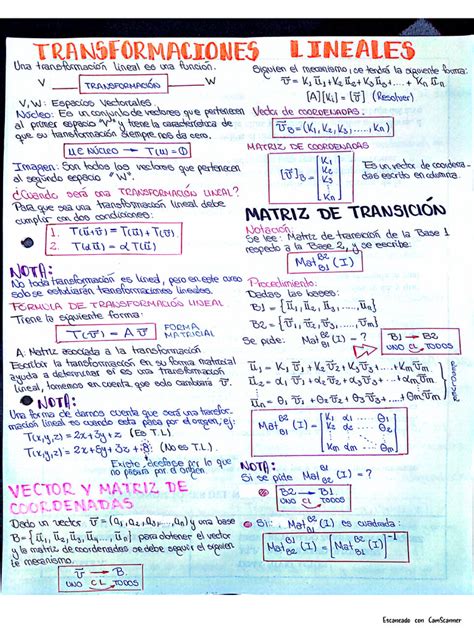 TRANSFORMACIONES LINEALES
Una transformación lineal es una función.
V — TRANSFORMACIÓN — W
V, W: Espacios Vectoriales.
Núcleo: Es un conjunto de vectores que pertenecen
al primer espacio "V" y tiene la característica de
que su transformación siempre nos da cero.
u ∈ Núcleo → T(u) = 0
Imagen: Son todos los vectores que pertenecen
al segundo espacio "W".
¿Cuándo será una TRANSFORMACIÓN LINEAL?
Para que sea una transformación lineal debe
cumplir con dos condiciones:
1. T(u+v) = T(u) + T(v)
2. T(αu) = αT(u)
NOTA:
No toda transformación es lineal, pero en este curso
solo se estudiarán transformaciones lineales.
FÓRMULA DE TRANSFORMACIÓN LINEAL
Tiene la siguiente forma:
T(v) = A v FORMA
MATRICIAL
A: Matriz asociada a la transformación
Escribir la transformación en su forma matricial
ayuda a determinar si es una transformación
lineal, tomemos en cuenta que solo cambiará v.
NOTA:
Una forma de darnos cuenta que será una transfor-
mación lineal es cuando esta pasa por el origen, ej:
T(x,y,z) = 2x+3y+z (Es T.L)
T(x,y,z) = 2x+5y+3z+8 (No es T.L)
VECTOR Y MATRIZ DE
COORDENADAS
Dado un vector v = (a₁, a₂, a₃, ..., aₙ) y una base
B = {u₁, u₂, u₃, ..., uₙ} para obtener el vector
y la matriz de coordenadas se debe seguir el siguien
te mecanismo.
v → B
UNO CL TODOS
Siguien el mecanismo, se tendrá la siguiente forma:
v = K₁u₁ + K₂u₂ + K₃u₃ + ... + Kₙuₙ
[A][K] = [v] (Resolver)
Vector de COORDENADAS:
v_B = (K₁, K₂, K₃, ..., Kₙ)
MATRIZ DE COORDENADAS
[v]_B = [K₁ K₂ K₃ ⋮ Kₙ] Es un vector de coordena-
das escrito en columna.
MATRIZ DE TRANSICIÓN
Notación:
Se lee: Matriz de transición de la Base 1
respecto a la Base 2, y se escribe:
Mat B2 B1 (I)
Procedimiento:
Dadas las bases:
B1 = {u₁, u₂, u₃, ..., uₙ}
B2 = {v₁, v₂, v₃, ..., vₙ}
Se pide: Mat B2 B1 (I) = ?
B1 → B2
UNO CL TODOS
NOTA:
Si se pide Mat B1 B2 (I) = ?
B2 → B1
UNO CL TODOS
Si: Mat B2 B1 (I) es cuadrada:
Escaneado con CamScanner